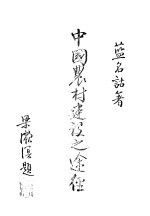 藍名詁著
中國農村建設之途徑
梁漱溟題